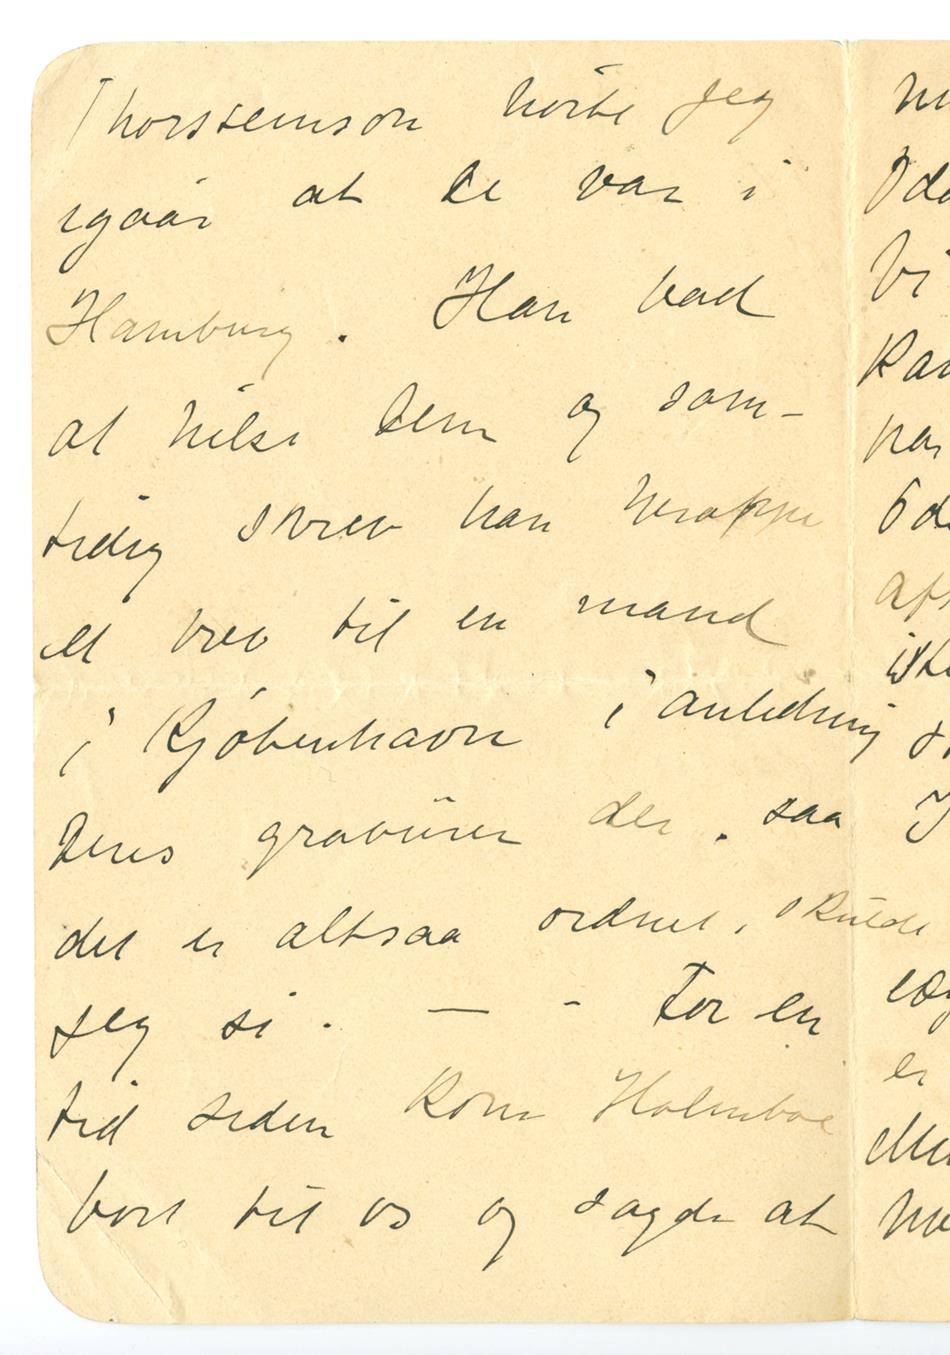 Thorsteinson hørte jeg
igaar at De var i
Hamburg. Han bad
at hilse Dem og sam-
tidig skrev han heroppe
et brev til en mand
i Kjøbenhavn i anledning
Deres gravürer der. saa
det er altsaa ordnet, skulde
jeg si. — - For en
tid siden kom Holmboe
bort til os og sagde at